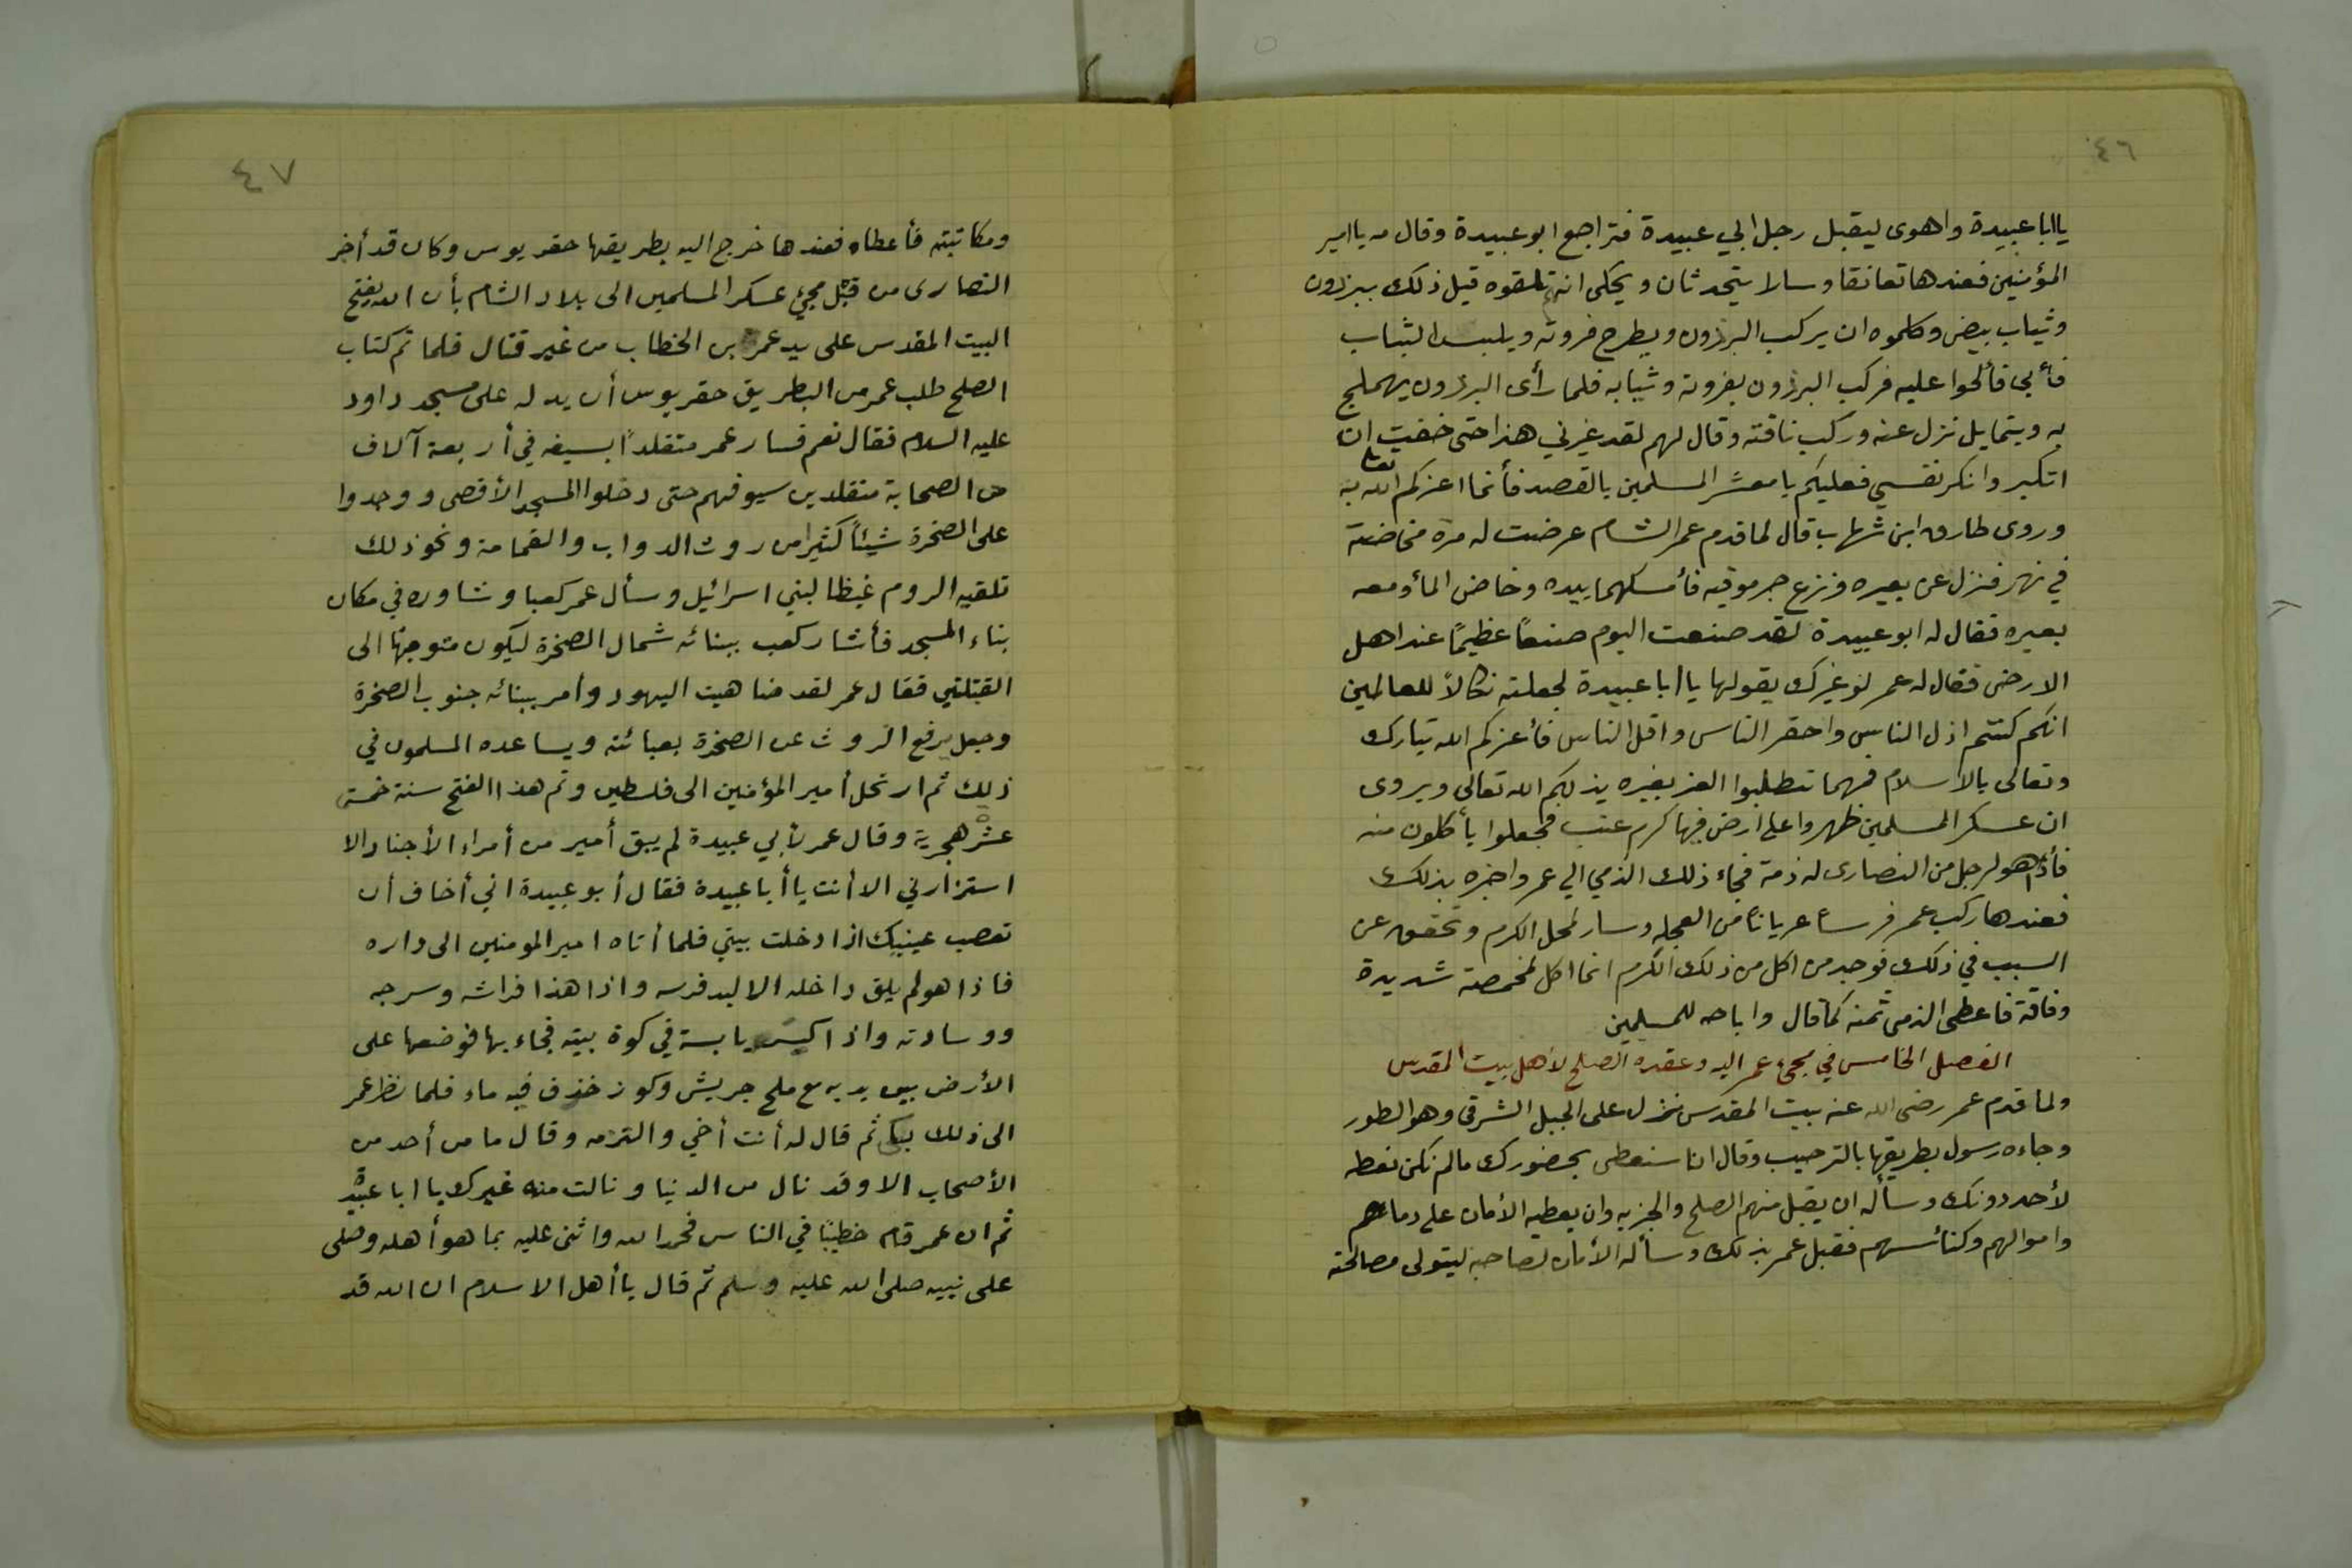 ٤٦
يا ابا عبيدة واهوى ليقبل رجل ابي عبيدة فتراجع ابو عبيدة وقال مه يا امير
المؤمنين فعندها تعانقا وسالا يتحدثان ويحكى انه تلقوه قبل ذلك ببرذون
وثياب بيض وكلموه ان يركب البرذون ويطرح فروته ويلبس الثياب
فأبى فألحوا عليه فركب البرذون بفروته وثيابه فلما رأى البرذون يهملج
به ويتمايل نزل عنه وركب ناقته وقال لهم لقد غيرني هذا حتى خفت ان
اتكبر وانكر نفسي فعليكم يا معشر المسلمين بالقصد فأنما اعزكم الله تعا به
وروى طارق ابن شهاب قال لما قدم عمر الشام عرضت له مرة مخاضة
في نهر فنزل عن بعيره ونزع جرموقيه فأمسكهما بيده وخاض المأ ومعه
بعيره فقال له ابو عبيدة لقد صنعت اليوم صنعاً عظيماً عند اهل
الارض فقال له عمر لو غيرك يقولها يا ابا عبيدة لجعلته نكالاً للعالمين
انكم كنتم اذل الناس واحقر الناس واقل الناس فأعزكم الله تبارك
وتعالى بالاسلام فمهما تتطلبوا العز بغيره يذلكم الله تعالى ويروى
ان عسكر المسلمين ظهروا على ارض فيها كرم عنب فجعلوا يأكلون منه
فأذا هو لرجل من النصارى له ذمة فجاء ذلك الذمي الي عمر واخبره بذلك
فعندها ركب عمر فرساً عرياناً من العجله وسار لمحل الكرم وتحقق عن
السبب في ذلك فوجد من اكل من ذلك الكرم انما اكل لمخمصة شديدة
وفاقة فاعطى الذمى ثمنه كما قال واباحه للمسلمين
الفصل الخامس في مجئ عمر اليه وعقده الصلح لأهل بيت المقدس
ولما قدم عمر رضى الله عنه بيت المقدس نزل على الجبل الشرقى وهو الطور
وجاءه رسول بطريقها بالترحيب وقال انا سنعطى بحضورك مالم نكن نعطه
لأحد دونك وسأله ان يقبل منهم الصلح والجزيه وان يعطيه الأمان على دماءهم
واموالهم وكنائسهم فقبل عمر بذلك وسأله الأمان لصاحبه ليتولى مصالحته
٤٧
ومكاتبته فأعطاه فعندها خرج اليه بطريقها صفريوس وكان قد أخبر
النصارى من قبل مجئ عسكر المسلمين الى بلاد الشام بأن الله يفتح
البيت المقدس على يد عمر بن الخطاب من غير قتال فلما تم كتاب
الصلح طلب عمر من البطريق صفريوس أن يدله على مسجد داود
عليه السلام فقال نعم فسار عمر متقلداً بسيفه في أربعة آلاف
من الصحابة متقلدين سيوفهم حتى دخلوا المسجد الأقصى ووجدوا
على الصخرة شيئاً كثيرا من روث الدواب والقمامة ونحو ذلك
تلقيه الروم غيظا لبني اسرائيل وسأل عمر كعبا وشاوره في مكان
بناء المسجد فأشار كعب ببنائه شمال الصخرة ليكون متوجها الى
القبلتين فقال عمر لقد ضاهيت اليهود وأمر ببنائه جنوب الصخرة
وجعل يرفع الروث عن الصخرة بعبائته ويساعده المسلمون في
ذلك ثم ارتحل أمير المؤمنين الى فلسطين وتم هذا الفتح سنة خمسة
عشر هجرية وقال عمر لأبي عبيدة لم يبق أمير من أمراء الأجناد الا
استزارني الا أنت يا أبا عبيدة فقال أبو عبيدة اني أخاف أن
تعصب عينيك اذا دخلت بيتي فلما أتاه امير المومنين الى داره
فاذا هو لم يلق داخله الا لبد فرسه واذا هذا فراشه وسرجه
ووسادته واذا كيس يابسة في كوة بيته فجاء بها فوضعها على
الأرض بين يديه مع ملح جريش وكوز خذف فيه ماء فلما نظر عمر
الى ذلك بكى ثم قال له أنت أخي والتزمه وقال ما من أحد من
الأصحاب الا وقد نال من الدنيا ونالت منه غيرك يا ابا عبيدة
ثم ان عمر قام خطيبًا في الناس فحمد الله واثنى عليه بما هو أهله وصلى
على نبيه صلى الله عليه وسلم ثم قال يا أهل الاسلام ان الله قد